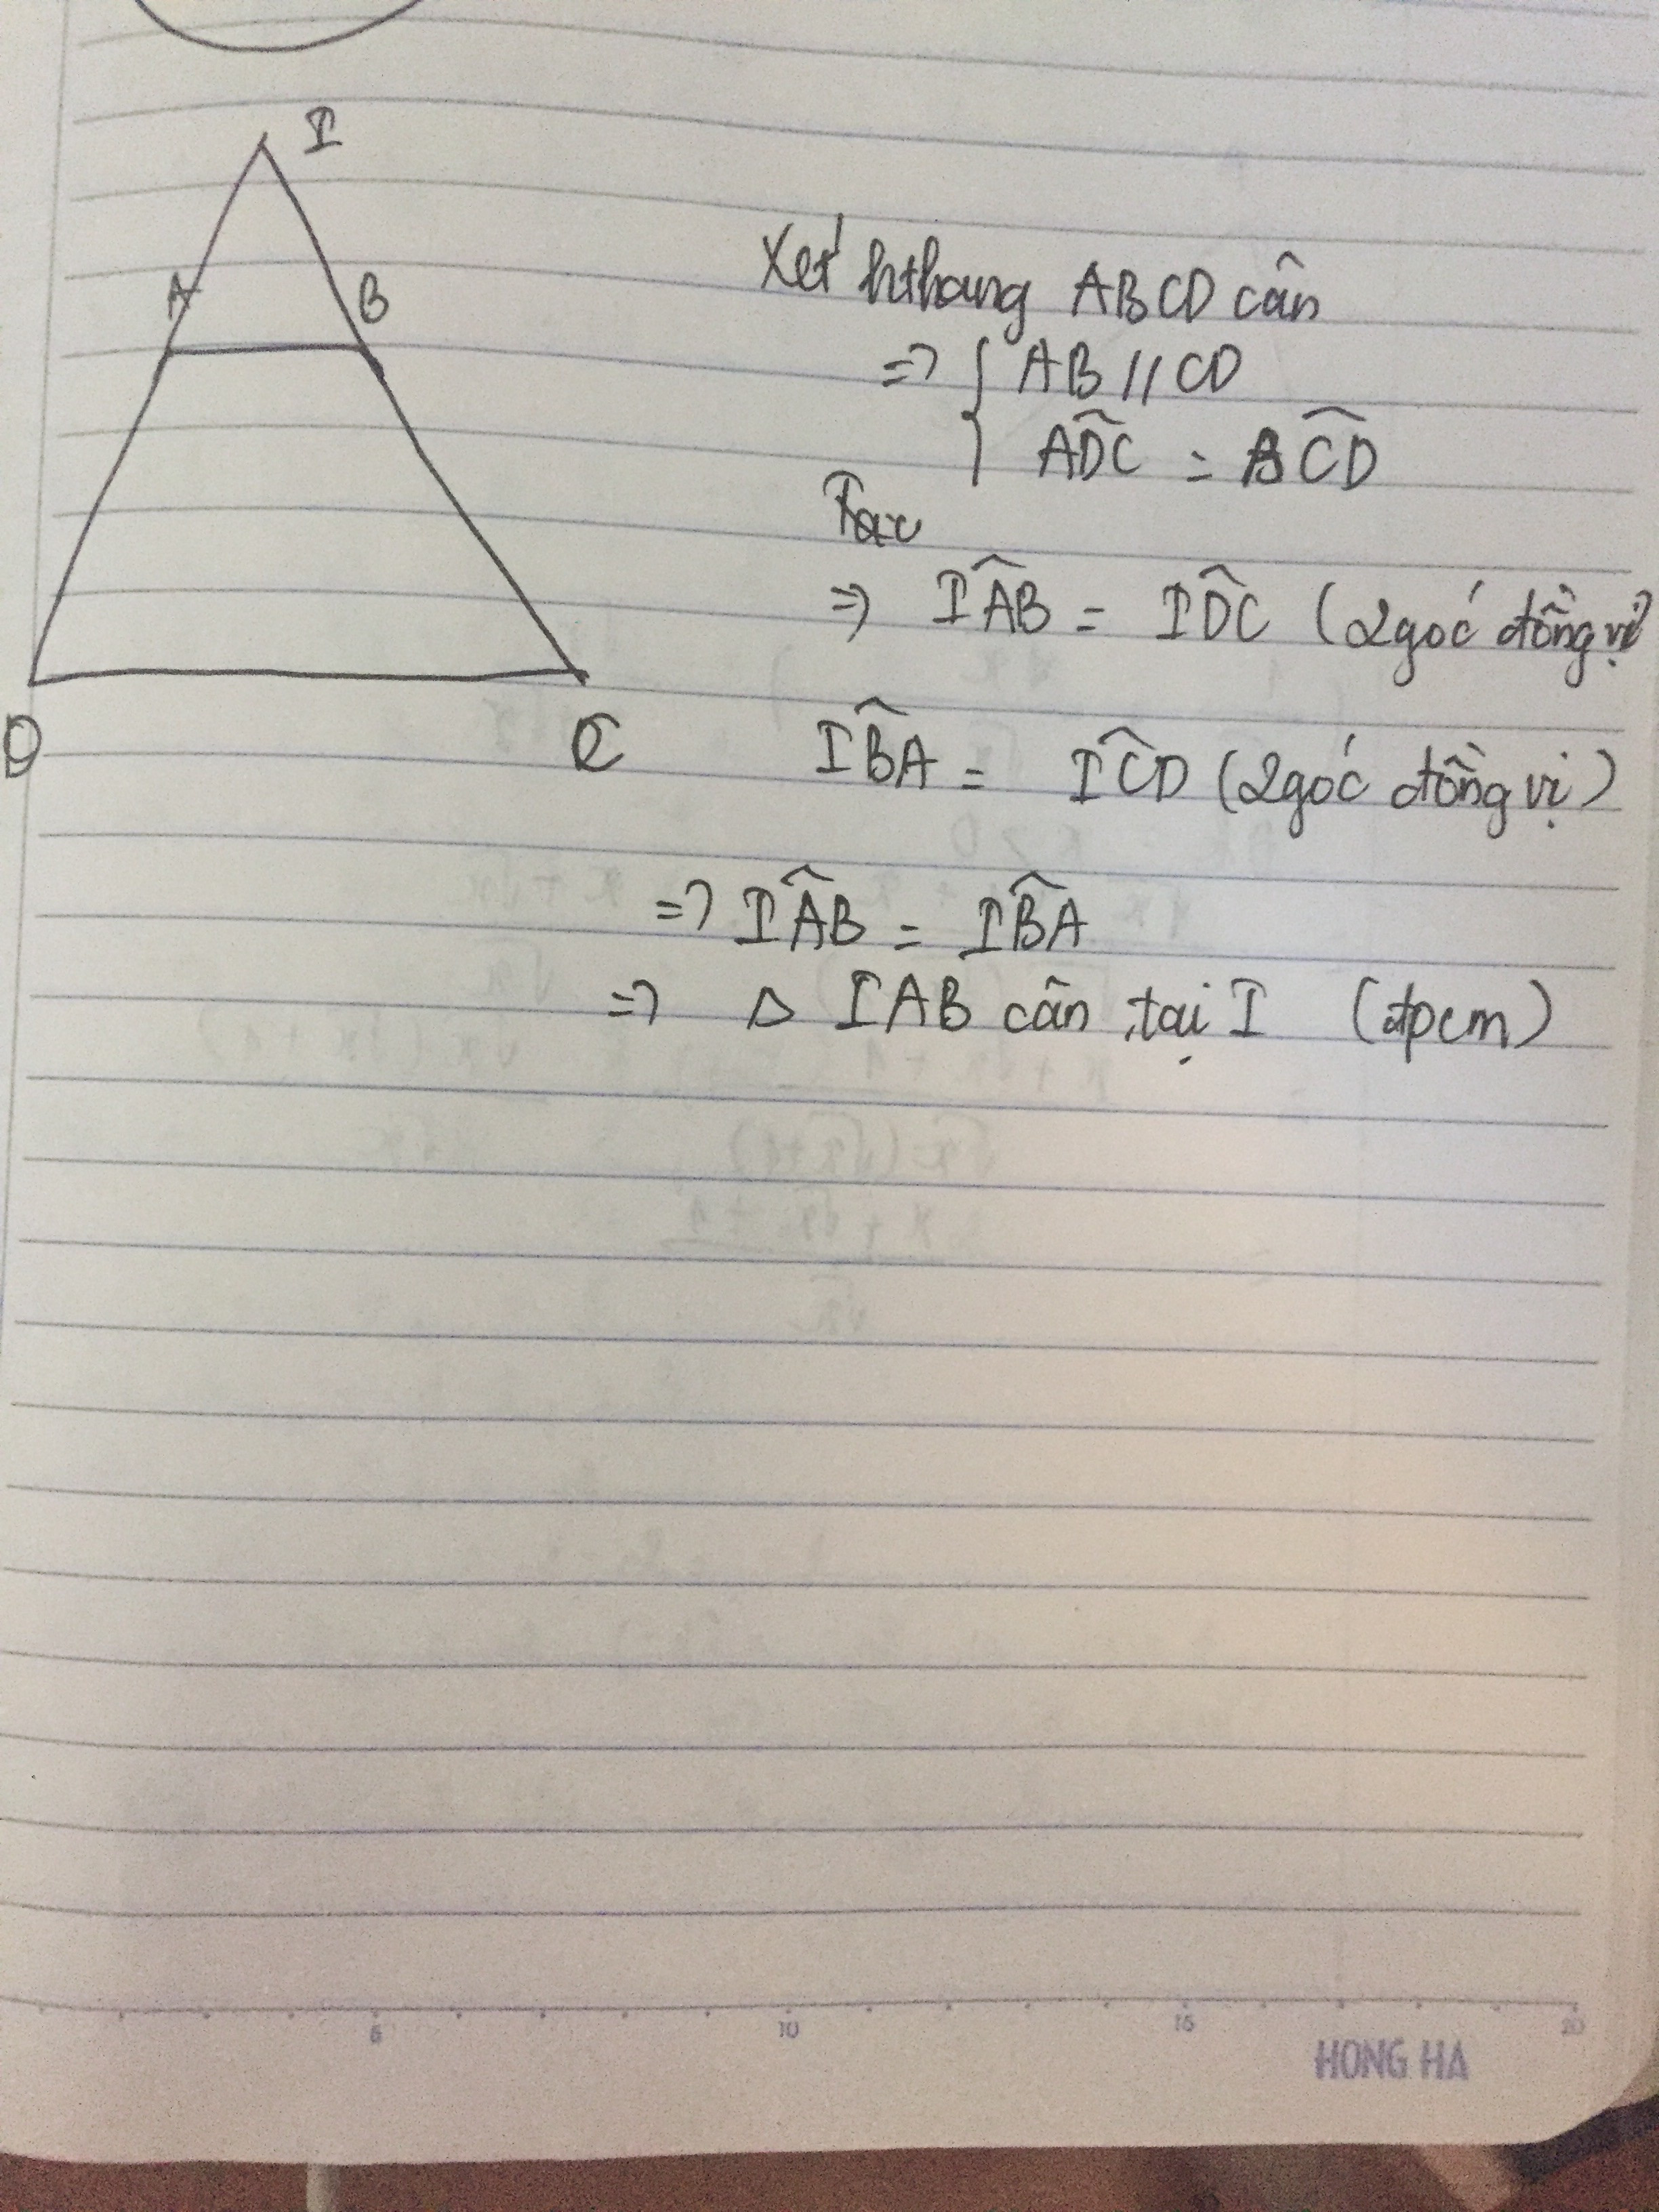 I
A B
D C
Xét hthang ABCD cân
=> { AB // CD
ADC^ = BCD^
=> IAB^ = IDC^ (2 góc đồng vị
IBA^ = ICD^ (2 góc đồng vị)
=> IAB^ = IBA^
=> Δ IAB cân tại I (đpcm)
5 10 15 20
HONG HA